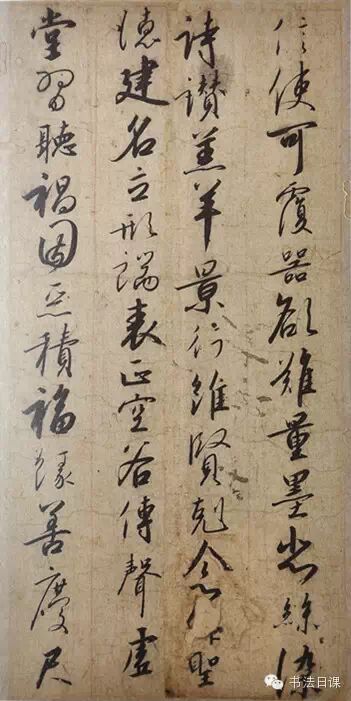 信使可覆器欲難量墨悲絲染
詩讚羔羊景行維賢剋念作聖
德建名立形端表正空谷傳聲虛
堂習聽禍因惡積福緣善慶尺
书法日课